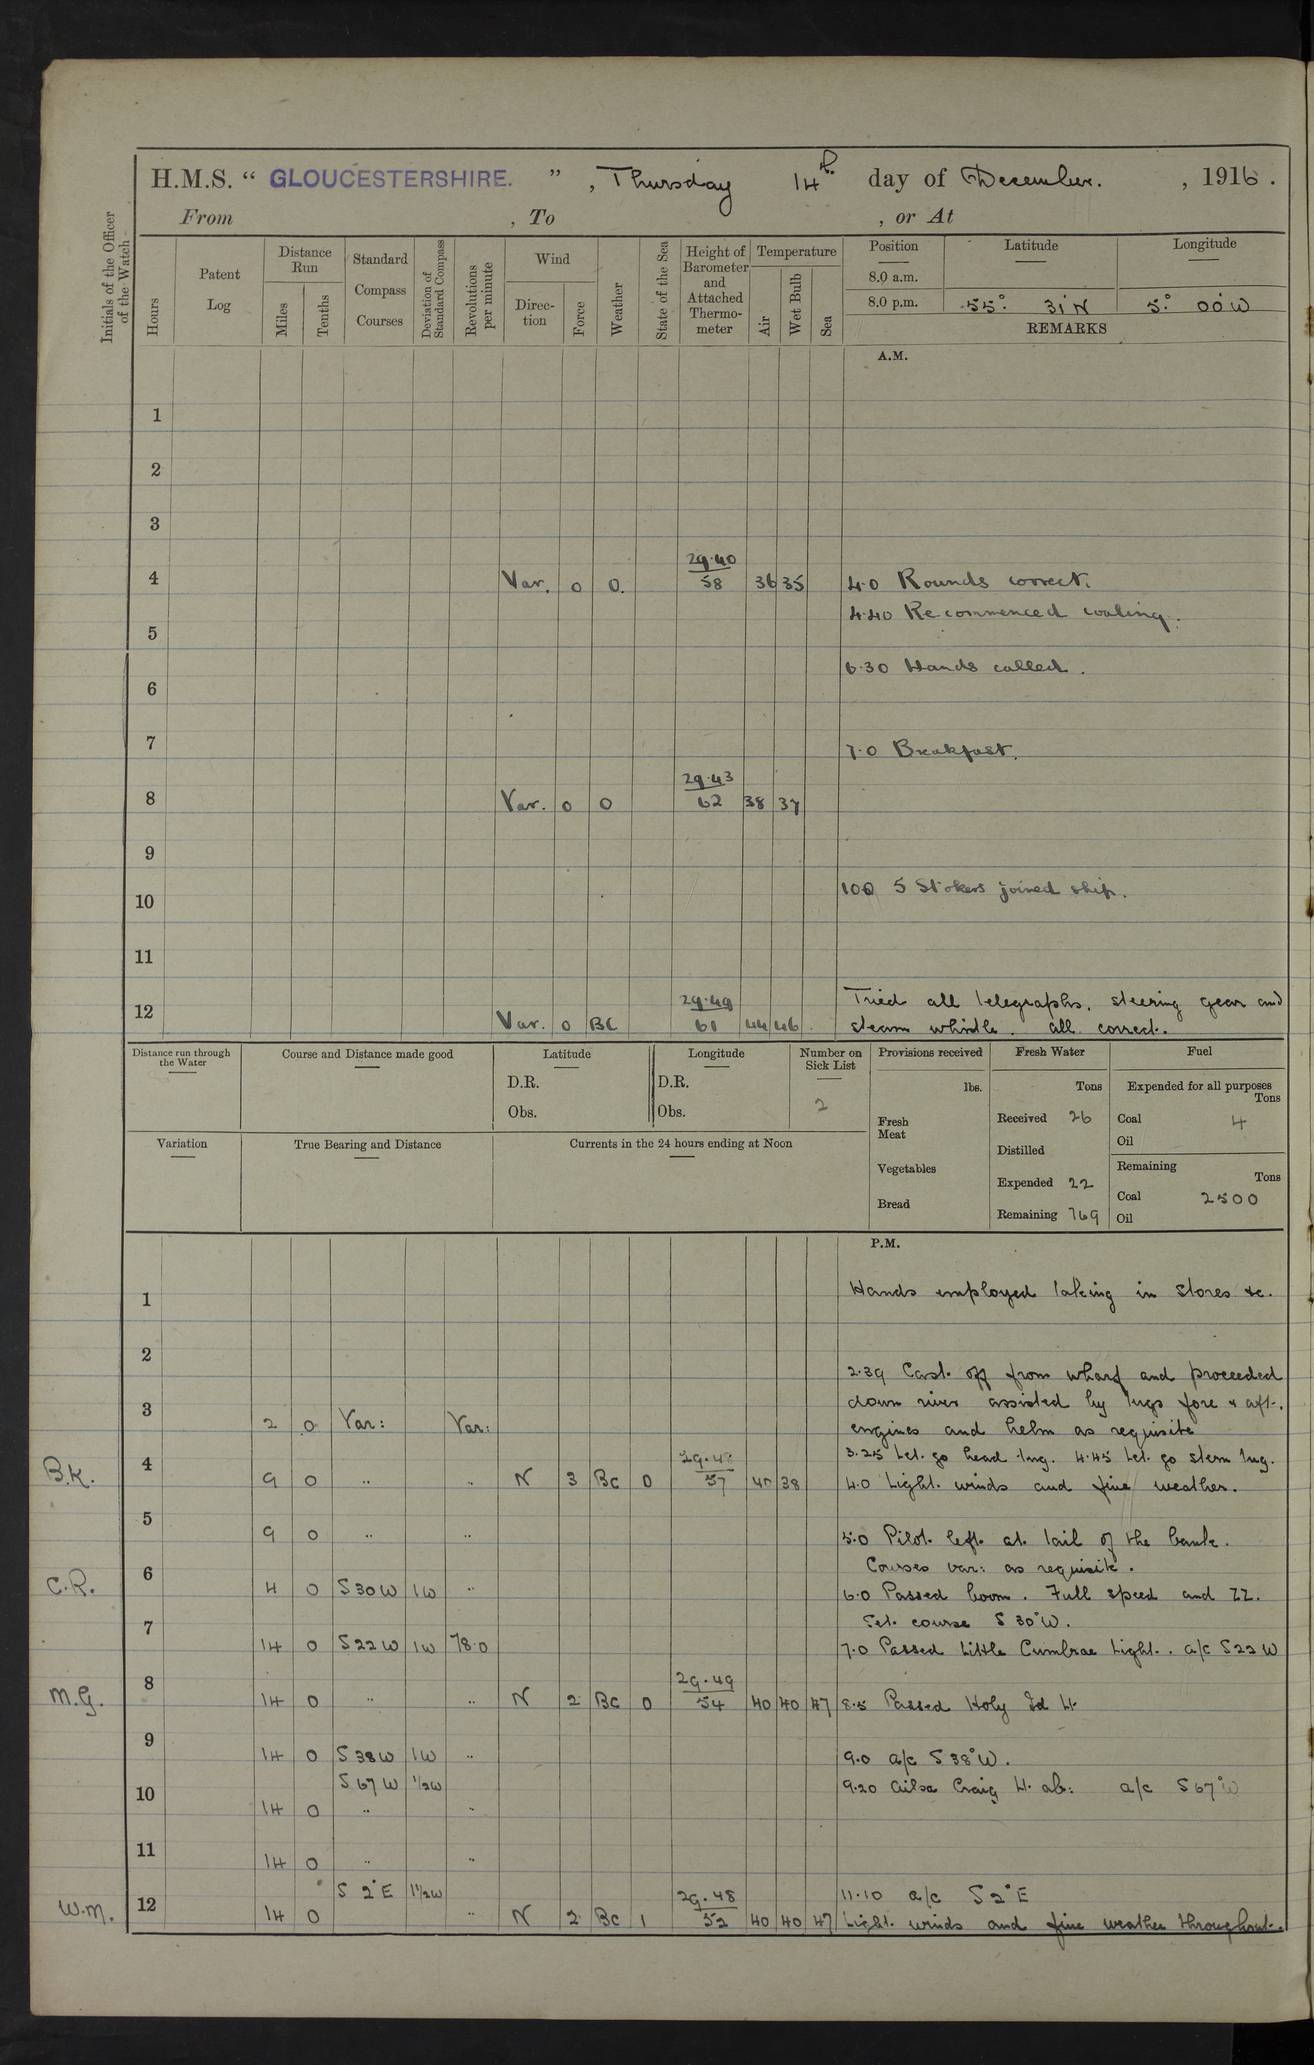 H.M.S. “ GLOUCESTERSHIRE. ” , Thursday 14th day of December. , 1916 .
From , To , or At
Initials of the Officer of the Watch
Hours
Patent Log
Distance Run
Miles
Tenths
Standard Compass Courses
Deviation of Standard Compass
Revolutions per minute
Wind
Direc-tion
Force
Weather
State of the Sea
Height of Barometer and Attached Thermo-meter
Temperature
Air
Wet Bulb
Sea
Position Latitude Longitude
8.0 a.m.
8.0 p.m. 55° 31' N 5° 00' W
REMARKS
A.M.
1
2
3
29.40
4 Var. 0 0. 58 36 35 4.0 Rounds correct.
4.40 Recommenced coaling.
5
6.30 Hands called.
6
7 7.0 Breakfast.
29.43
8 Var. 0 0 62 38 37
9
10.0 5 Stokers joined ship.
10
11
29.49 Tried all telegraphs, steering gear and
12 Var. 0 BC 61 44 46 steam whistle. all correct.
Distance run through the Water
Course and Distance made good
Latitude
D.R.
Obs.
Longitude
D.R.
Obs.
Number on Sick List
2
Provisions received
lbs.
Fresh Meat
Vegetables
Bread
Fresh Water
Tons
Received 26
Distilled
Expended 22
Remaining 769
Fuel
Expended for all purposes
Tons
Coal 4
Oil
Remaining
Tons
Coal 2500
Oil
Variation
True Bearing and Distance
Currents in the 24 hours ending at Noon
P.M.
1 Hands employed taking in stores &c.
2
2.39 Cast off from wharf and proceeded
3 down river assisted by tugs fore & aft.
2 0 Var: Var: engines and helm as requisite
4 29.48 3.25 Let go head tug. 4.45 Let go stern tug.
B.K. 9 0 " " N 3 BC 0 57 40 38 4.0 Light winds and fine weather.
5 9 0 " " 5.0 Pilot left at tail of the bank.
Courses var: as requisite.
6
C.R. 4 0 S30W 1W " 6.0 Passed boom. Full speed and ZZ.
Set course S 30°W.
7 14 0 S22W 1W 78.0 7.0 Passed Little Cumbrae Light. a/c S22W
8 29.49
M.G. 14 0 " " N 2 BC 0 54 40 40 47 8.5 Passed Holy Id Lt
9 14 0 S38W 1W " 9.0 a/c S38°W.
S67W 1/2W 9.20 Ailsa Craig Lt. ab: a/c S67°W
10 14 0 " "
11 14 0 " "
S 2°E 1 1/2W 29.48 11.10 a/c S2°E
W.M. 12 14 0 " N 2 BC 1 52 40 40 47 Light winds and fine weather throughout.